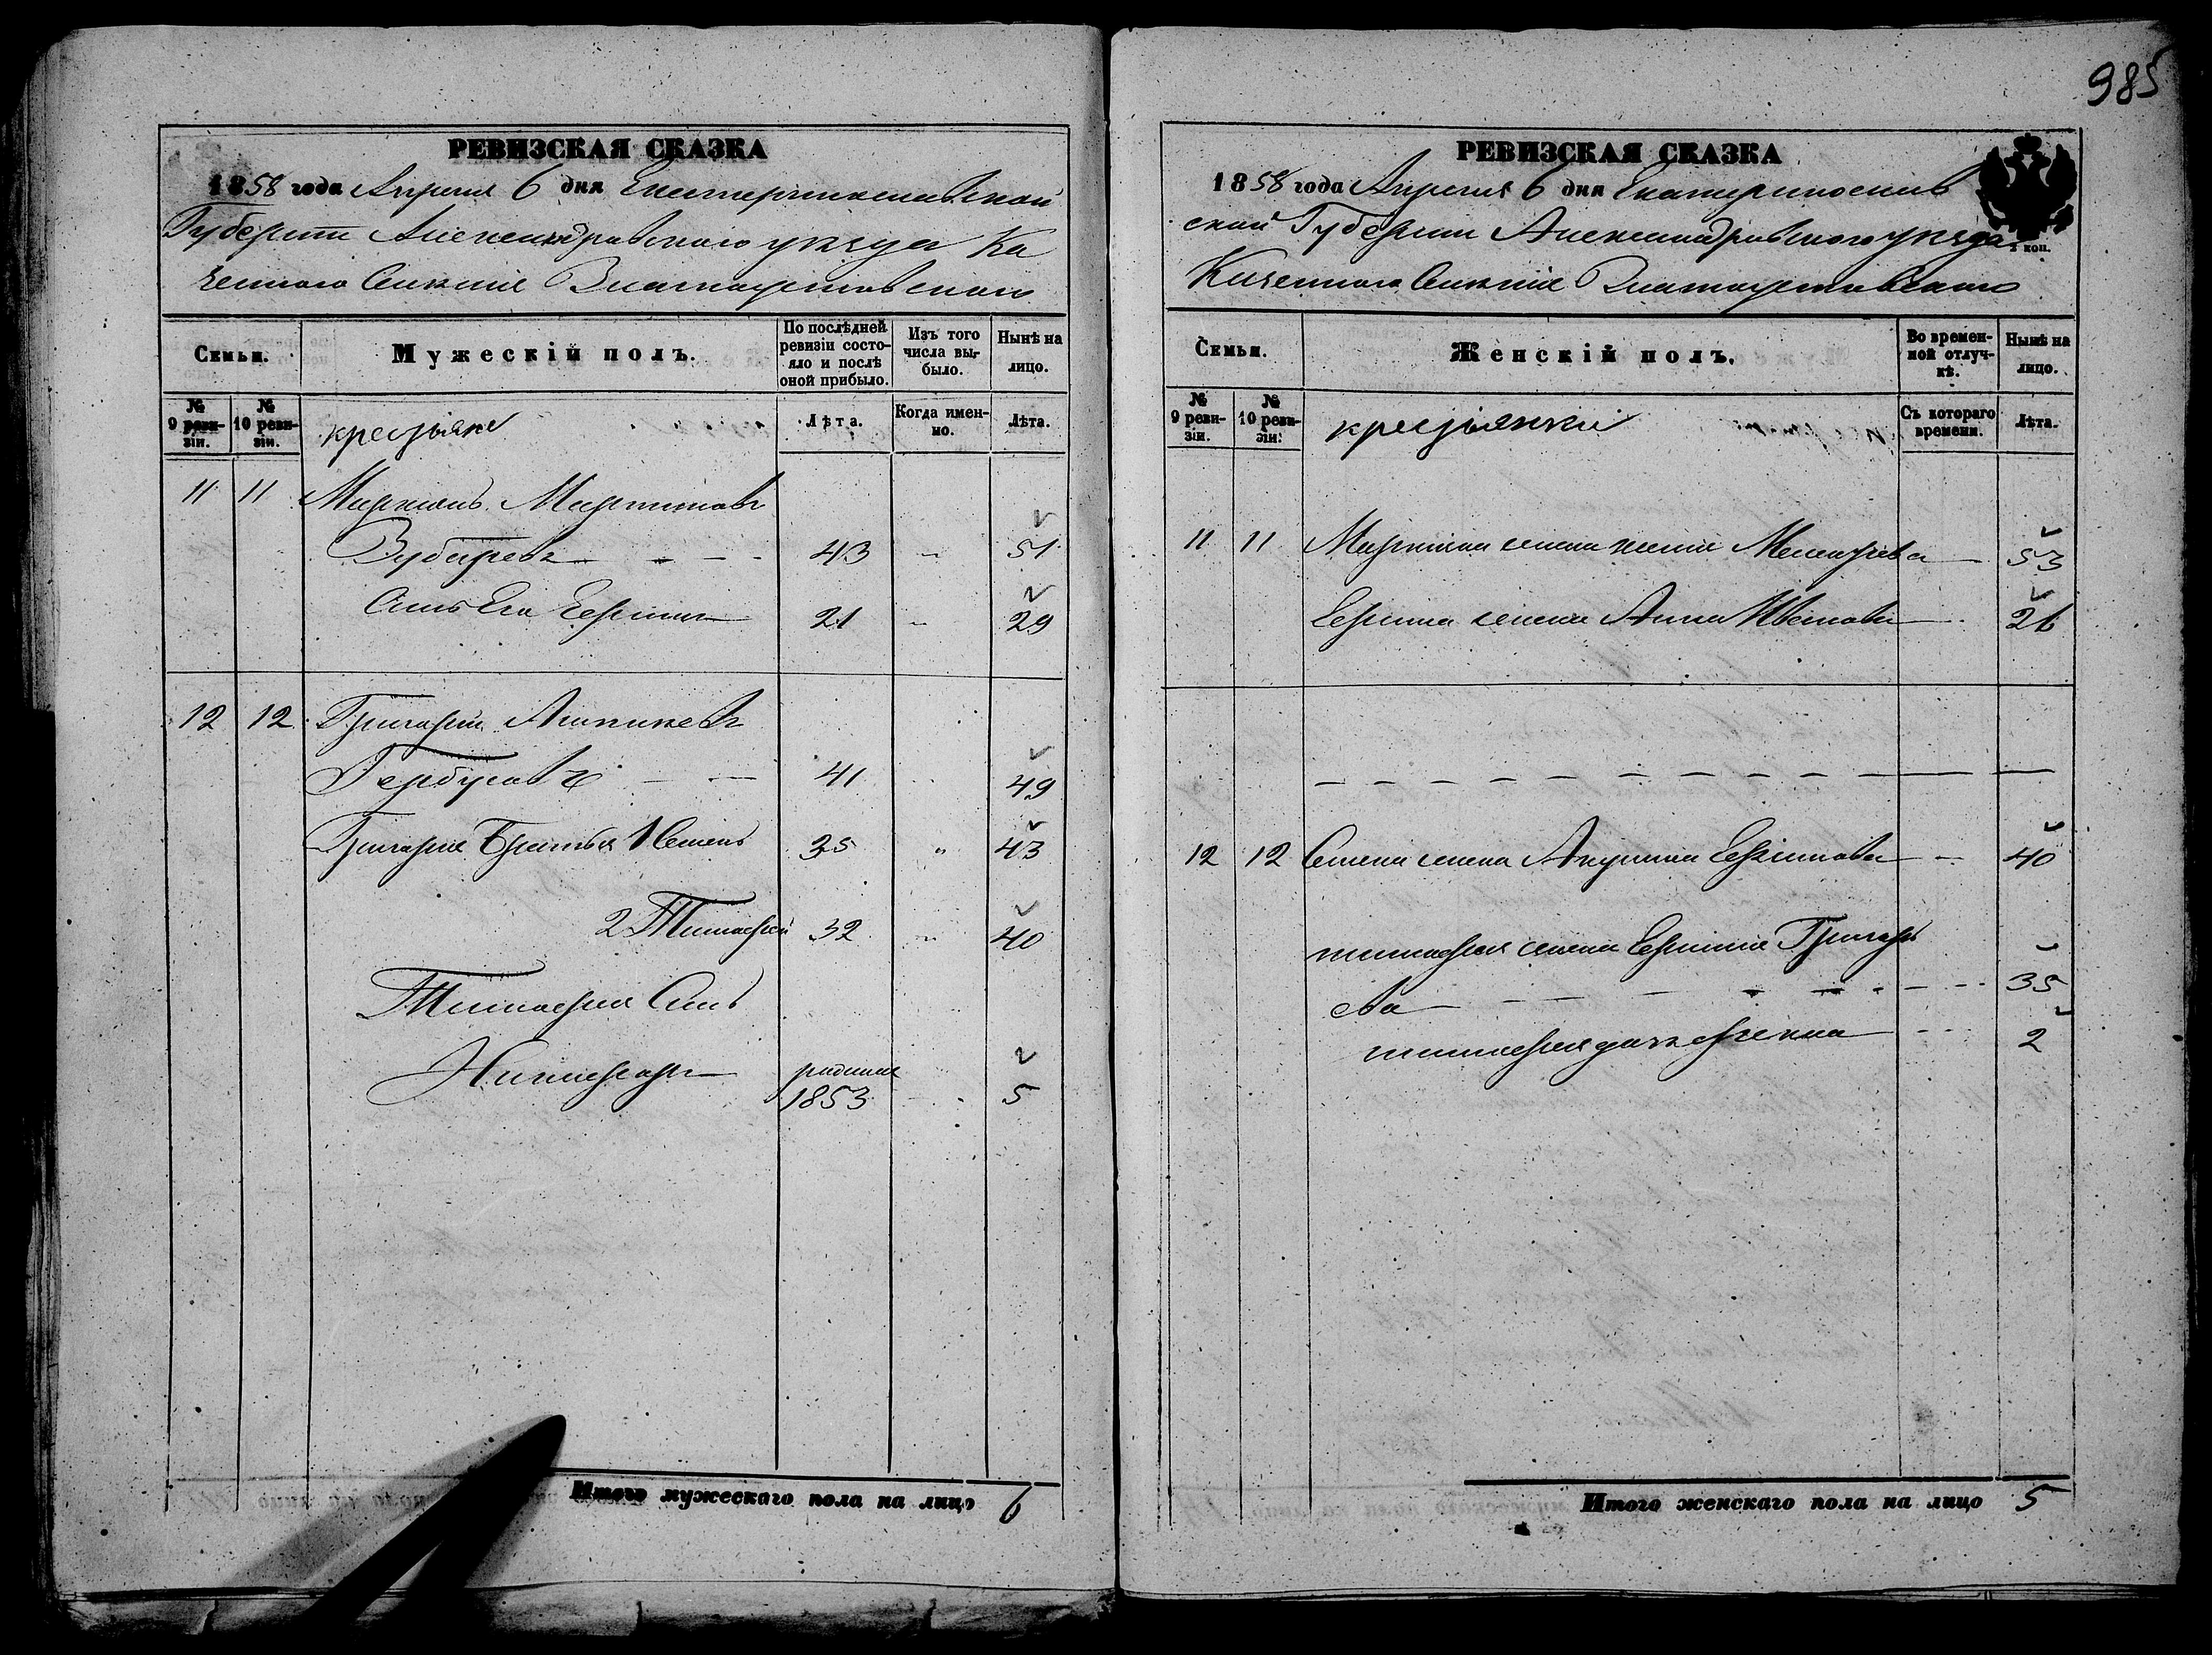 985
РЕВИЗСКАЯ СКАЗКА
1858 года Апреля 6 дня Екатеринославской
Губернии Александровского уезда Ка
зенного Селения Златоустовского
Семьи.
Мужескій полъ.
По послѣдней ревизіи состояло и послѣ оной прибыло.
Изъ того числа выбыло.
Нынѣ на лицо.
№ 9 ревизіи.
№ 10 ревизіи.
крестьяне
Лѣта.
Когда именно.
Лѣта.
11 11 Мартинов
43 51
Сын Его 21 29
12 12 Григорий
41 49
Григория Братья 1 Семен 35 " 43
2 Тимофей 32 " 40
Тимофея Сын
Никифор родился
1853 5
Итого мужескаго пола на лицо 6
РЕВИЗСКАЯ СКАЗКА
1858 года Апреля 6 дня Екатеринослав
ской Губернии Александровского уезда
2 коп.
Казенного Селения Златоустовского
Семьи.
Женскій полъ.
Во временной отлучкѣ.
Нынѣ на лицо.
№ 9 ревизіи.
№ 10 ревизіи.
крестьянки
Съ котораго времени.
Лѣта.
11 11 жена 53
жена Анна Иванова 26
12 12 Семена жена Акулина 40
тимофея жена Григорь
ева 35
тимофея дочь 2
Итого женскаго пола на лицо 5